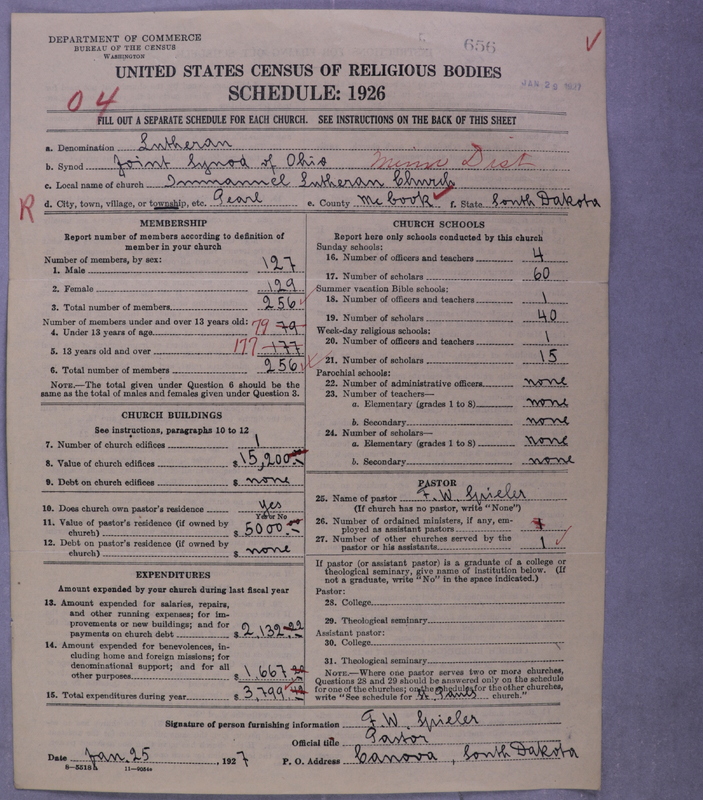 DEPARTMENT OF COMMERCE
BUREAU OF THE CENSUS
WASHINGTON
656
JAN 29 1927
UNITED STATES CENSUS OF RELIGIOUS BODIES
SCHEDULE: 1926
04
FILL OUT A SEPARATE SCHEDULE FOR EACH CHURCH. SEE INSTRUCTIONS ON THE BACK OF THIS SHEET
a. Denomination Lutheran
b. Synod Joint Synod of Ohio Minn Dist
c. Local name of church Immanuel Lutheran Church
R d. City, town, village, or township, etc. Pearl e. County McCook f. State South Dakota
MEMBERSHIP
Report number of members according to definition of
member in your church
Number of members, by sex:
1. Male 127
2. Female 129
3. Total number of members 256
Number of members under and over 13 years old:
4. Under 13 years of age 79 79
5. 13 years old and over 177 177
6. Total number of members 256
NOTE.—The total given under Question 6 should be the
same as the total of males and females given under Question 3.
CHURCH BUILDINGS
See instructions, paragraphs 10 to 12
7. Number of church edifices 1
8. Value of church edifices $ 15,200.—
9. Debt on church edifices $ none
10. Does church own pastor's residence yes
Yes or No
11. Value of pastor's residence (if owned by
church) $ 5000.—
12. Debt on pastor's residence (if owned by
church) $ none
EXPENDITURES
Amount expended by your church during last fiscal year
13. Amount expended for salaries, repairs,
and other running expenses; for im-
provements or new buildings; and for
payments on church debt $ 2,132.22
14. Amount expended for benevolences, in-
cluding home and foreign missions; for
denominational support; and for all
other purposes $ 1,667
15. Total expenditures during year $ 3,799
CHURCH SCHOOLS
Report here only schools conducted by this church
Sunday schools:
16. Number of officers and teachers 4
17. Number of scholars 60
Summer vacation Bible schools:
18. Number of officers and teachers 1
19. Number of scholars 40
Week-day religious schools:
20. Number of officers and teachers 1
21. Number of scholars 15
Parochial schools:
22. Number of administrative officers none
23. Number of teachers—
a. Elementary (grades 1 to 8) none
b. Secondary none
24. Number of scholars—
a. Elementary (grades 1 to 8) none
b. Secondary none
PASTOR
25. Name of pastor F. W. Spieler
(If church has no pastor, write "None")
26. Number of ordained ministers, if any, em-
ployed as assistant pastors
27. Number of other churches served by the
pastor or his assistants 1
If pastor (or assistant pastor) is a graduate of a college or
theological seminary, give name of institution below. (If
not a graduate, write "No" in the space indicated.)
Pastor:
28. College
29. Theological seminary
Assistant pastor:
30. College
31. Theological seminary
NOTE.—Where one pastor serves two or more churches,
Questions 28 and 29 should be answered only on the schedule
for one of the churches; on the schedules for the other churches,
write "See schedule for St Pauls church."
Signature of person furnishing information F. W. Spieler
Official title Pastor
Date Jan. 25, 1927 P. O. Address Canova, South Dakota
8-5518 11-9054